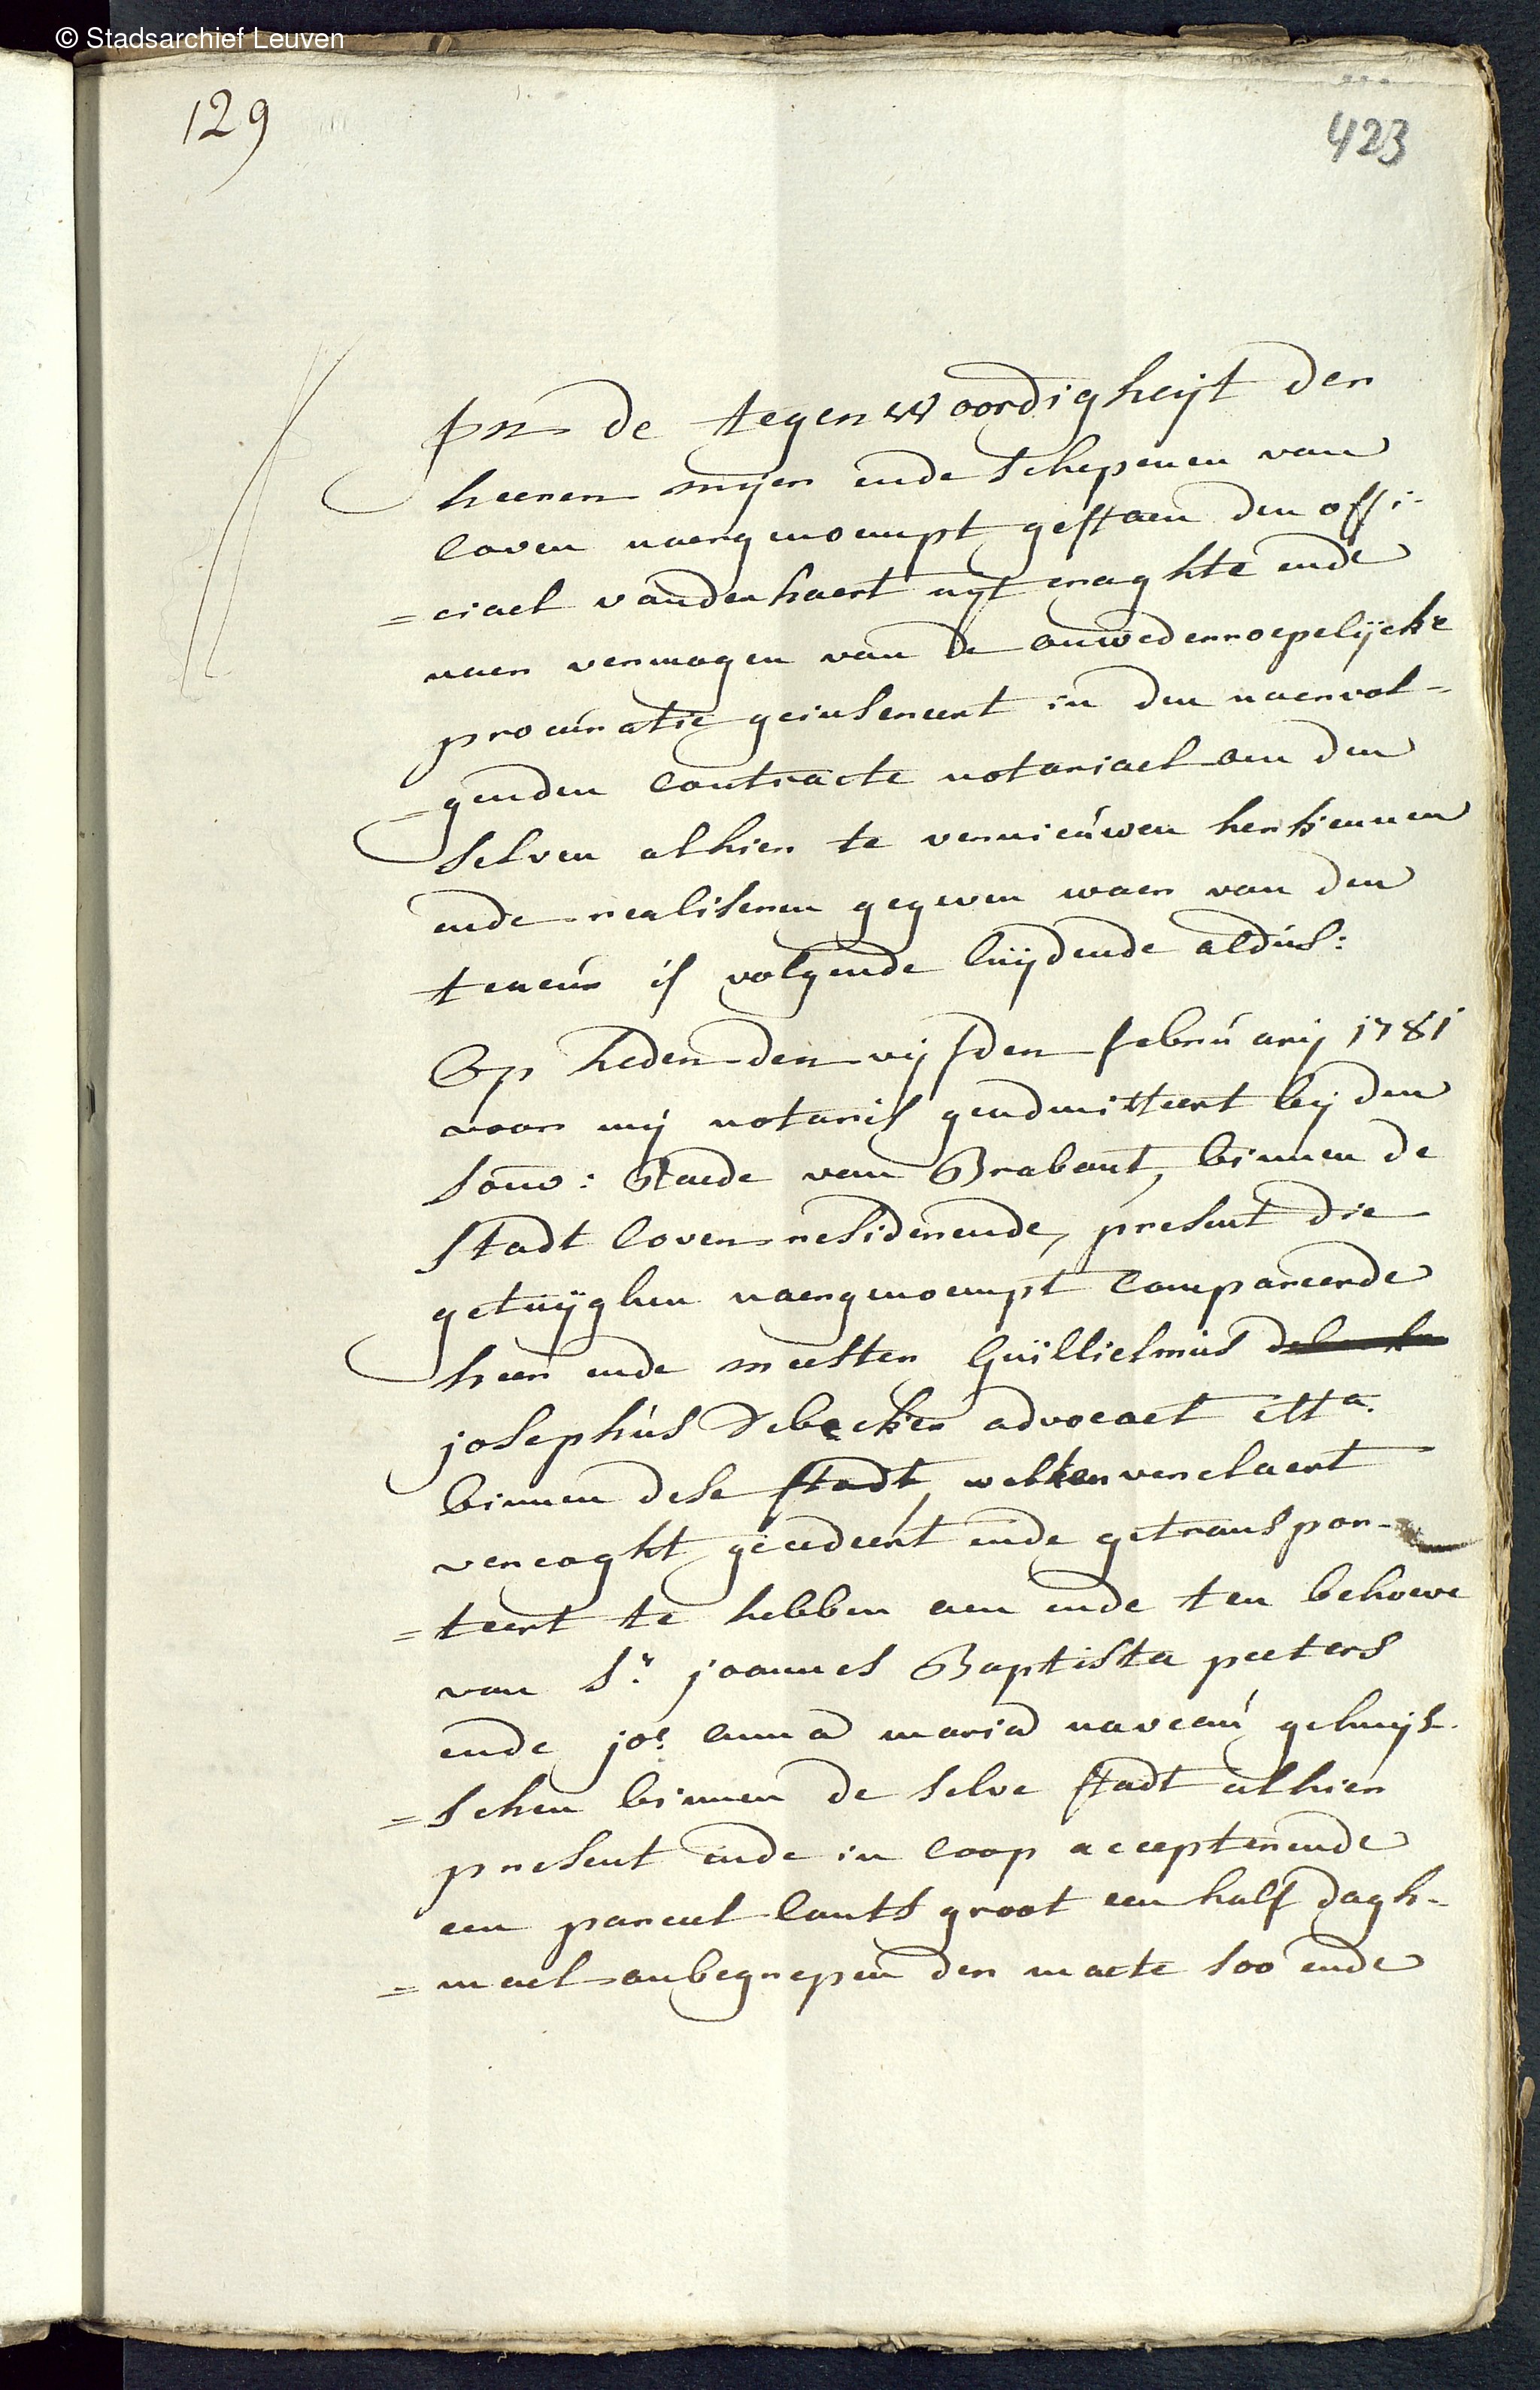 © Stadsarchief Leuven
129
423
In de tegenwoordigheijt der
heeren meyer ende schepenen van
loven naergenoempt gestaen den offi-
=ciael vanderhaert uyt craghte ende
naer vermogen van de onwederroepelijcke
procuratie geinsereert in den naervol-
=genden contracte notariael om den
selven alhier te vernieuwen herkennen
ende realiseren gegeven waer van den
teneur is volgende luijdende aldus:
Op heden den vijfden februarij 1781
voor mij notaris geadmitteert bij den
souv: Raede van Brabant, binnen de
stadt loven residerende, present die
getuijghen naergenoempt compareerde
heer ende meester Guillielmus
josephus Debecker advocaet etta.
binnen dese stadt, welken verclaert
vercoght, gecedeert ende getranspor-
=teert te hebben aen ende ten behoeve
van Sr. joannes Baptista peeters
ende jo.e anna maria naveau gehuijs-
=schen binnen de selve stadt alhier
present ende in coop accepterende
een parceel lants groot een half dagh-
=mael onbegrepen der maete soo ende